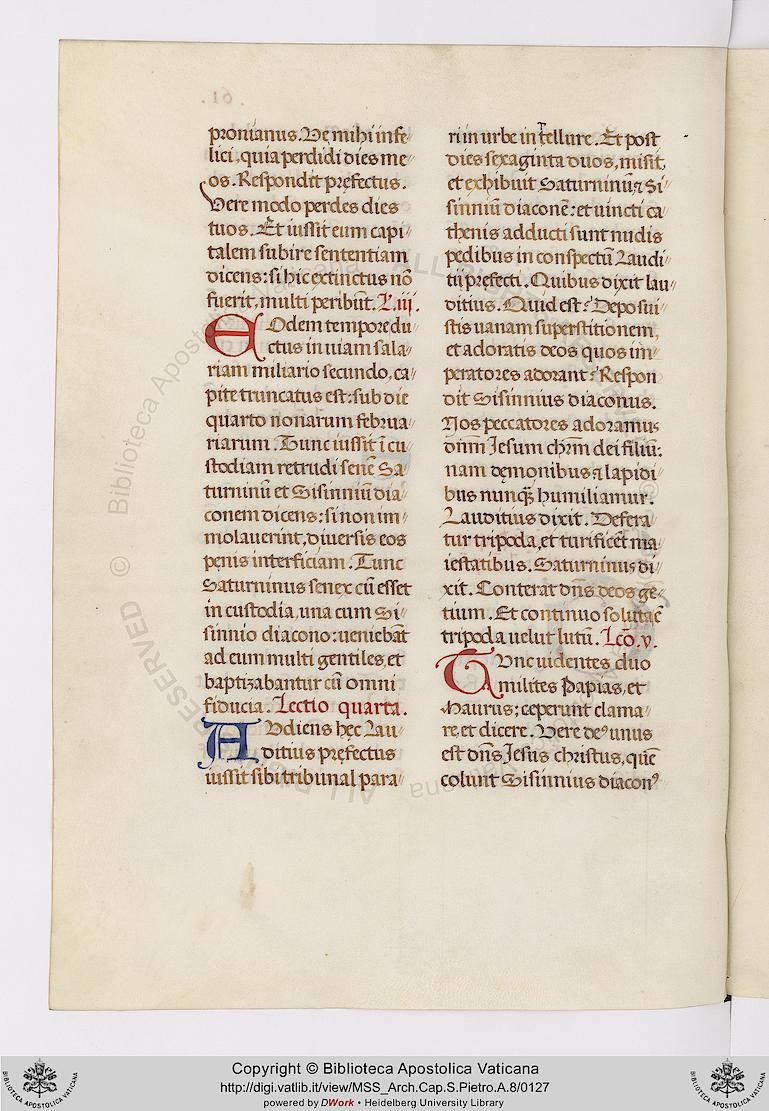 . 61 .
pronianus. Ve mihi infe
lici, quia perdidi dies me
os. Respondit prefectus.
Vere modo perdes dies
tuos. Et iussit eum capi
talem subire sententiam
dicens: si hic extinctus nō
fuerit, multi peribūt. L. iii.
EOdem tempore du
ctus in uiam sala
riam miliario secundo, ca
pite truncatus est: sub die
quarto nonarum februa
riarum. Tunc iussit ī cu
stodiam retrudi senē Sa
turninū et Sisinniū dia
conem dicens: si non im
molauerint, diuersis eos
penis interficiam. Tunc
Saturninus senex cū esset
in custodia, una cum Si
sinnio diacono: ueniebāt
ad eum multi gentiles, et
baptizabantur cū omni
fiducia. Lectio quarta.
AVdiens hęc Lau
ditius prefectus
iussit sibi tribunal para
ri in urbe in tellure. Et post
dies sexaginta duos, misit,
et exhibuit Saturninū ⁊ Si
sinniū diaconē: et uincti ca
thenis adducti sunt nudis
pedibus in conspectū Laudi
tii prefecti. Quibus dixit lau
ditius. Quid est? Deposui
stis uanam superstitionem,
et adoratis deos quos im
peratores adorant? Respon
dit Sisinnius diaconus.
Nos peccatores adoramus
dnm̄ Iesum chrm̄ dei filiū:
nam dęmonibus ⁊ lapidi
bus nunq̄ humiliamur.
Lauditius dixit. Defera
tur tripoda, et turificēt ma
iestatibus. Saturninus di
xit. Conterat dn̄s deos gē
tium. Et continuo solutae
tripoda uelut lutū. Lco̅. v.
TVnc uidentes duo
milites Papias, et
Maurus; ceperunt clama
re, et dicere. Vere deꝰ unus
est dn̄s Iesus christus, quē
colunt Sisinnius diaconꝰ
© Biblioteca Apostolica Vaticana ALL RIGHTS RESERVED
Copyright © Biblioteca Apostolica Vaticana
http://digi.vatlib.it/view/MSS_Arch.Cap.S.Pietro.A.8/0127
powered by DWork • Heidelberg University Library
BIBLIOTECA APOSTOLICA VATICANA
BIBLIOTECA APOSTOLICA VATICANA